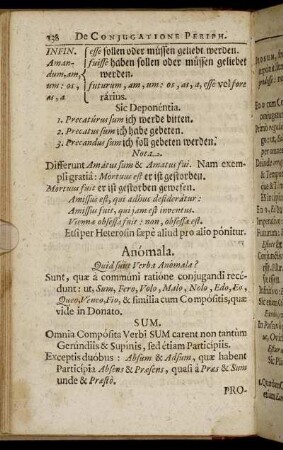 138 De CONJUGATIONE PERIPH.
INFIN. esse sollen oder müssen geliebt werden.
Aman- fuisse haben sollen oder müssen geliebet
dum, am, werden.
um: os, futurum, am, um: os, as, a, esse vel fore
as, a rárius.
Sic Deponéntia.
1. Precatúrus sum ich werde bitten.
2. Precatus sum ich habe gebeten.
3. Precandus sum ich soll gebeten werden.
Nota.
Differunt Amátus sum & Amatus fui. Nam exem-
pli gratiâ: Mortuus est er ist gestorben.
Mortuus fuit er ist gestorben gewesen.
Amissus est, qui adhuc desideratur:
Amissus fuit, qui jam est inventus.
Vienna obsessa fuit: non, obsessa est.
Etsi per Heterosin sæpè aliud pro alio pónitur.
Anómala.
Quid sunt Verba Anómala?
Sunt, quæ à communi ratione conjugandi recé-
dunt: ut, Sum, Fero, Volo, Malo, Nolo, Edo, Eo,
Queo, Veneo, Fio, & similia cum Compósitis, quæ
vide in Donato.
SUM.
Omnia Compósita Verbi SUM carent non tantùm
Gerúndiis & Supinis, sed étiam Participiis.
Exceptis duobus: Absum & Adsum, quæ habent
Participia Absens & Præsens, quasi à Præs & Sum
unde & Præstò.
PRO-